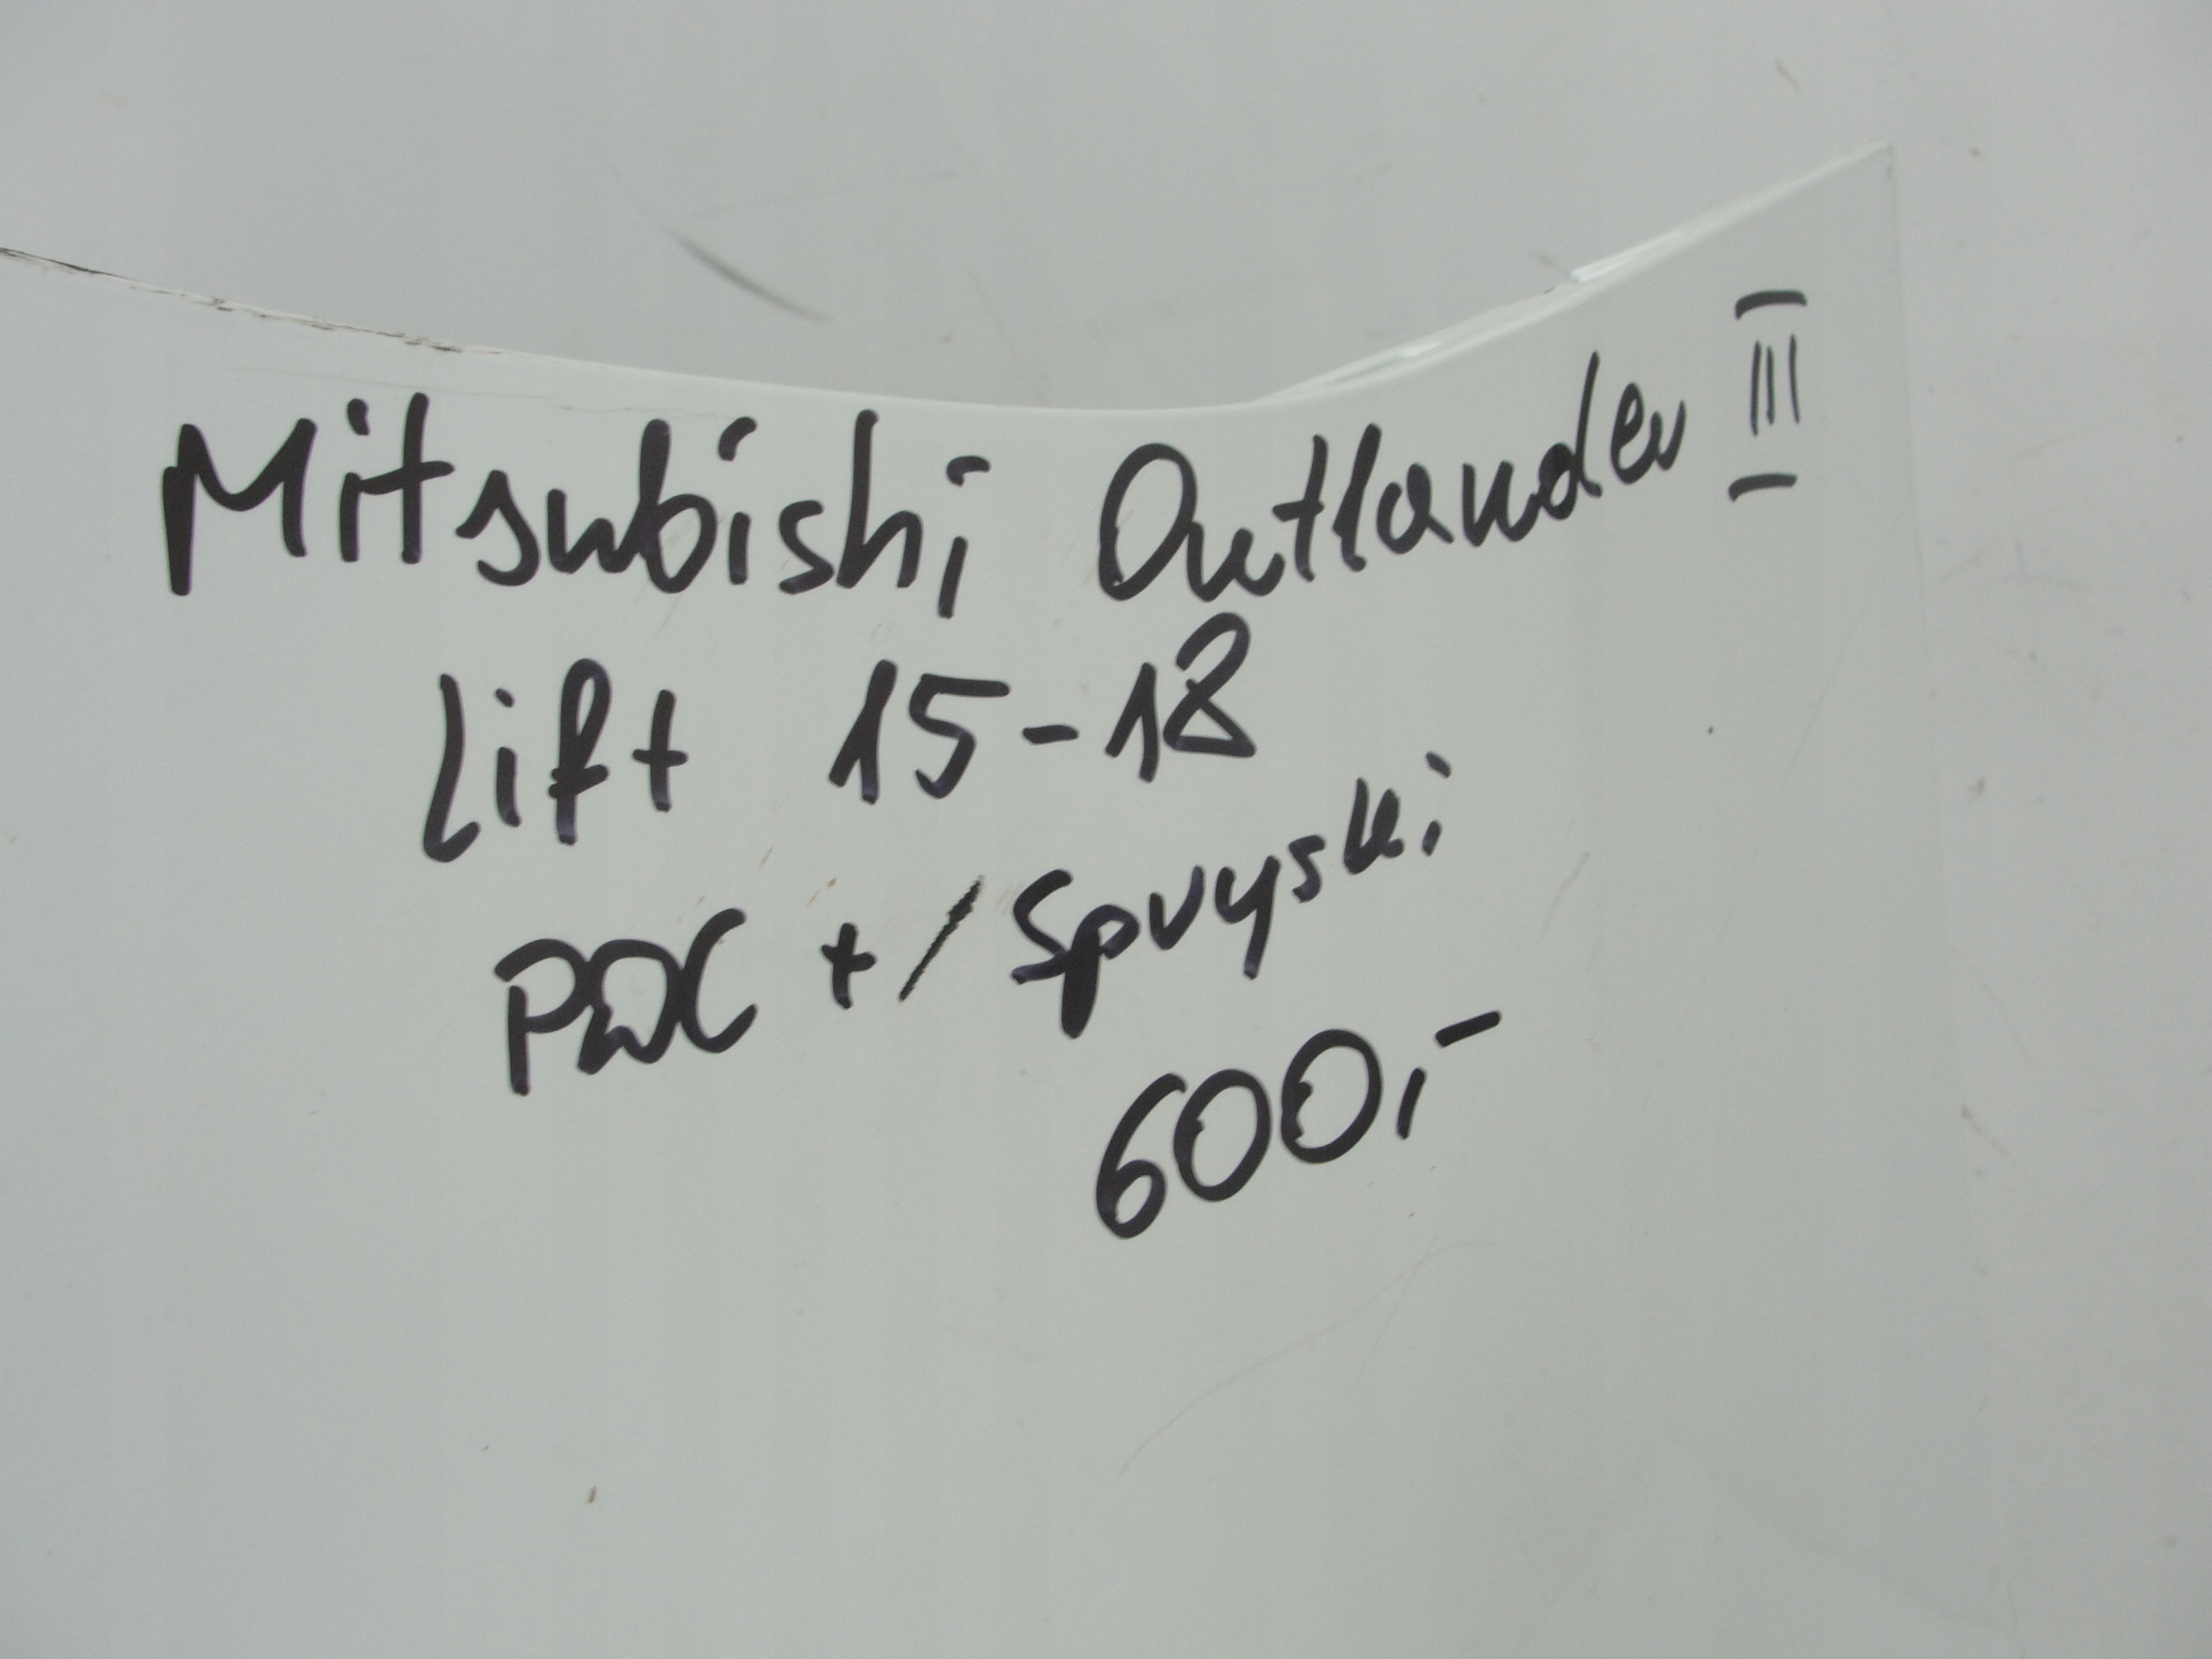 Mitsubishi Outlander III
Lift 15-18
PDC +/ Spryski
600,-